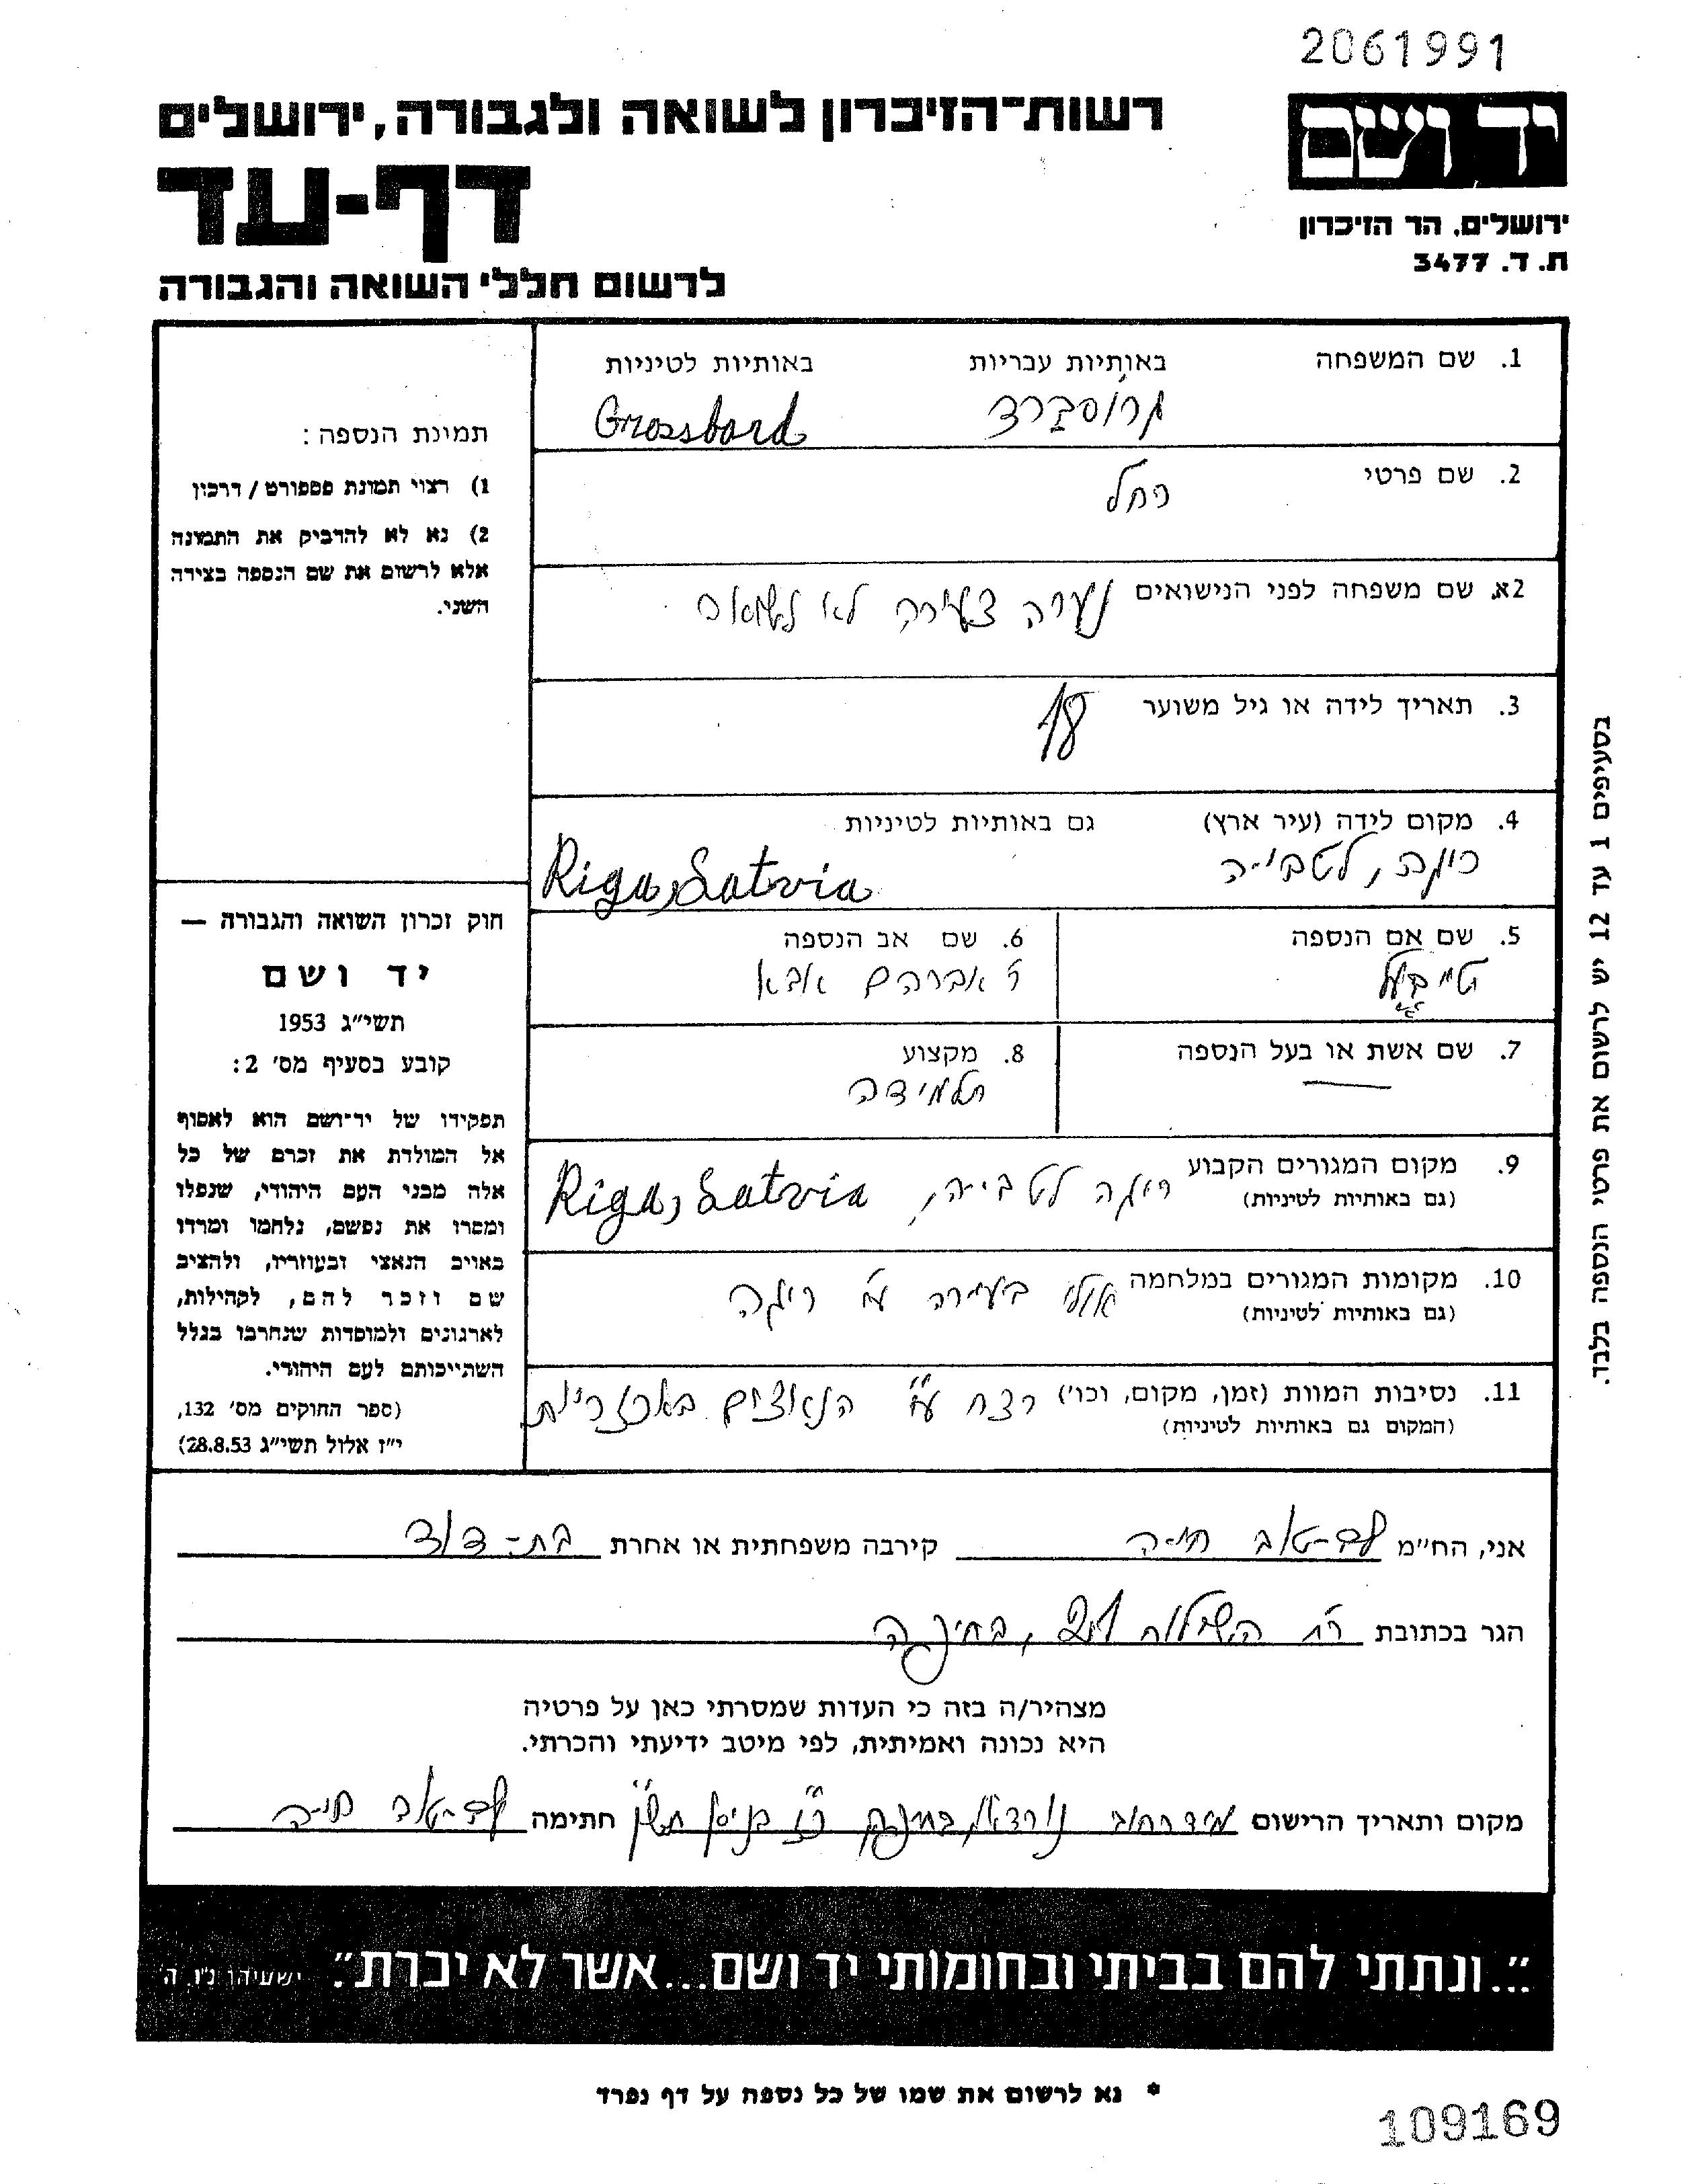 2061991
רשות־הזיכרון לשואה ולגבורה, ירושלים
יד ושם
דף-עד
ירושלים, הר הזיכרון
ת. ד. 3477
לרשום חללי השואה והגבורה
1. שם המשפחה באותיות עבריות באותיות לטיניות
גרוסברד Grossbard
2. שם פרטי רחל
2א. שם משפחה לפני הנישואים נערה צעירה לא נשואה
3. תאריך לידה או גיל משוער 18
4. מקום לידה (עיר ארץ) גם באותיות לטיניות
ריגה, לטבייה Riga, Latvia
5. שם אם הנספה 6. שם אב הנספה
ר' אברהם אבא
7. שם אשת או בעל הנספה 8. מקצוע
תלמידה
9. מקום המגורים הקבוע ריגה לטבייה, Riga, Latvia
(גם באותיות לטיניות)
10. מקומות המגורים במלחמה אולי בעיירה ריגה
(גם באותיות לטיניות)
11. נסיבות המוות (זמן, מקום, וכו') רצח ע"י הנאצים באכזריות
(המקום גם באותיות לטיניות)
תמונת הנספה:
1) רצוי תמונת פספורט / דרכון
2) נא לא להדביק את התמונה
אלא לרשום את שם הנספה בצידה
השני.
חוק זכרון השואה והגבורה —
יד ושם
תשי"ג 1953
קובע בסעיף מס' 2:
תפקידו של יד־ושם הוא לאסוף
אל המולדת את זכרם של כל
אלה מבני העם היהודי, שנפלו
ומסרו את נפשם, נלחמו ומרדו
באויב הנאצי ובעוזריו, ולהציב
שם וזכר להם, לקהילות,
לארגונים ולמוסדות שנחרבו בגלל
השתייכותם לעם היהודי.
(ספר החוקים מס' 132,
י"ז אלול תשי"ג 28.8.53)
בסעיפים 1 עד 12 יש לרשום את פרטי הנספה בלבד.
אני, הח"מ חיה קירבה משפחתית או אחרת בת-דוד
הגר בכתובת רח' השילוח 21,
מצהיר/ה בזה כי העדות שמסרתי כאן על פרטיה
היא נכונה ואמיתית, לפי מיטב ידיעתי והכרתי.
מקום ותאריך הרישום נורדאו, כ"ז בניסן תש"ן חתימה חיה
"...ונתתי להם בביתי ובחומותי יד ושם...אשר לא יכרת". ישעיהו נ"ו, ה'
* נא לרשום את שמו של כל נספה על דף נפרד
109169